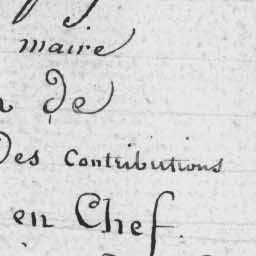 maire
de
Des Contributions
en Chef.